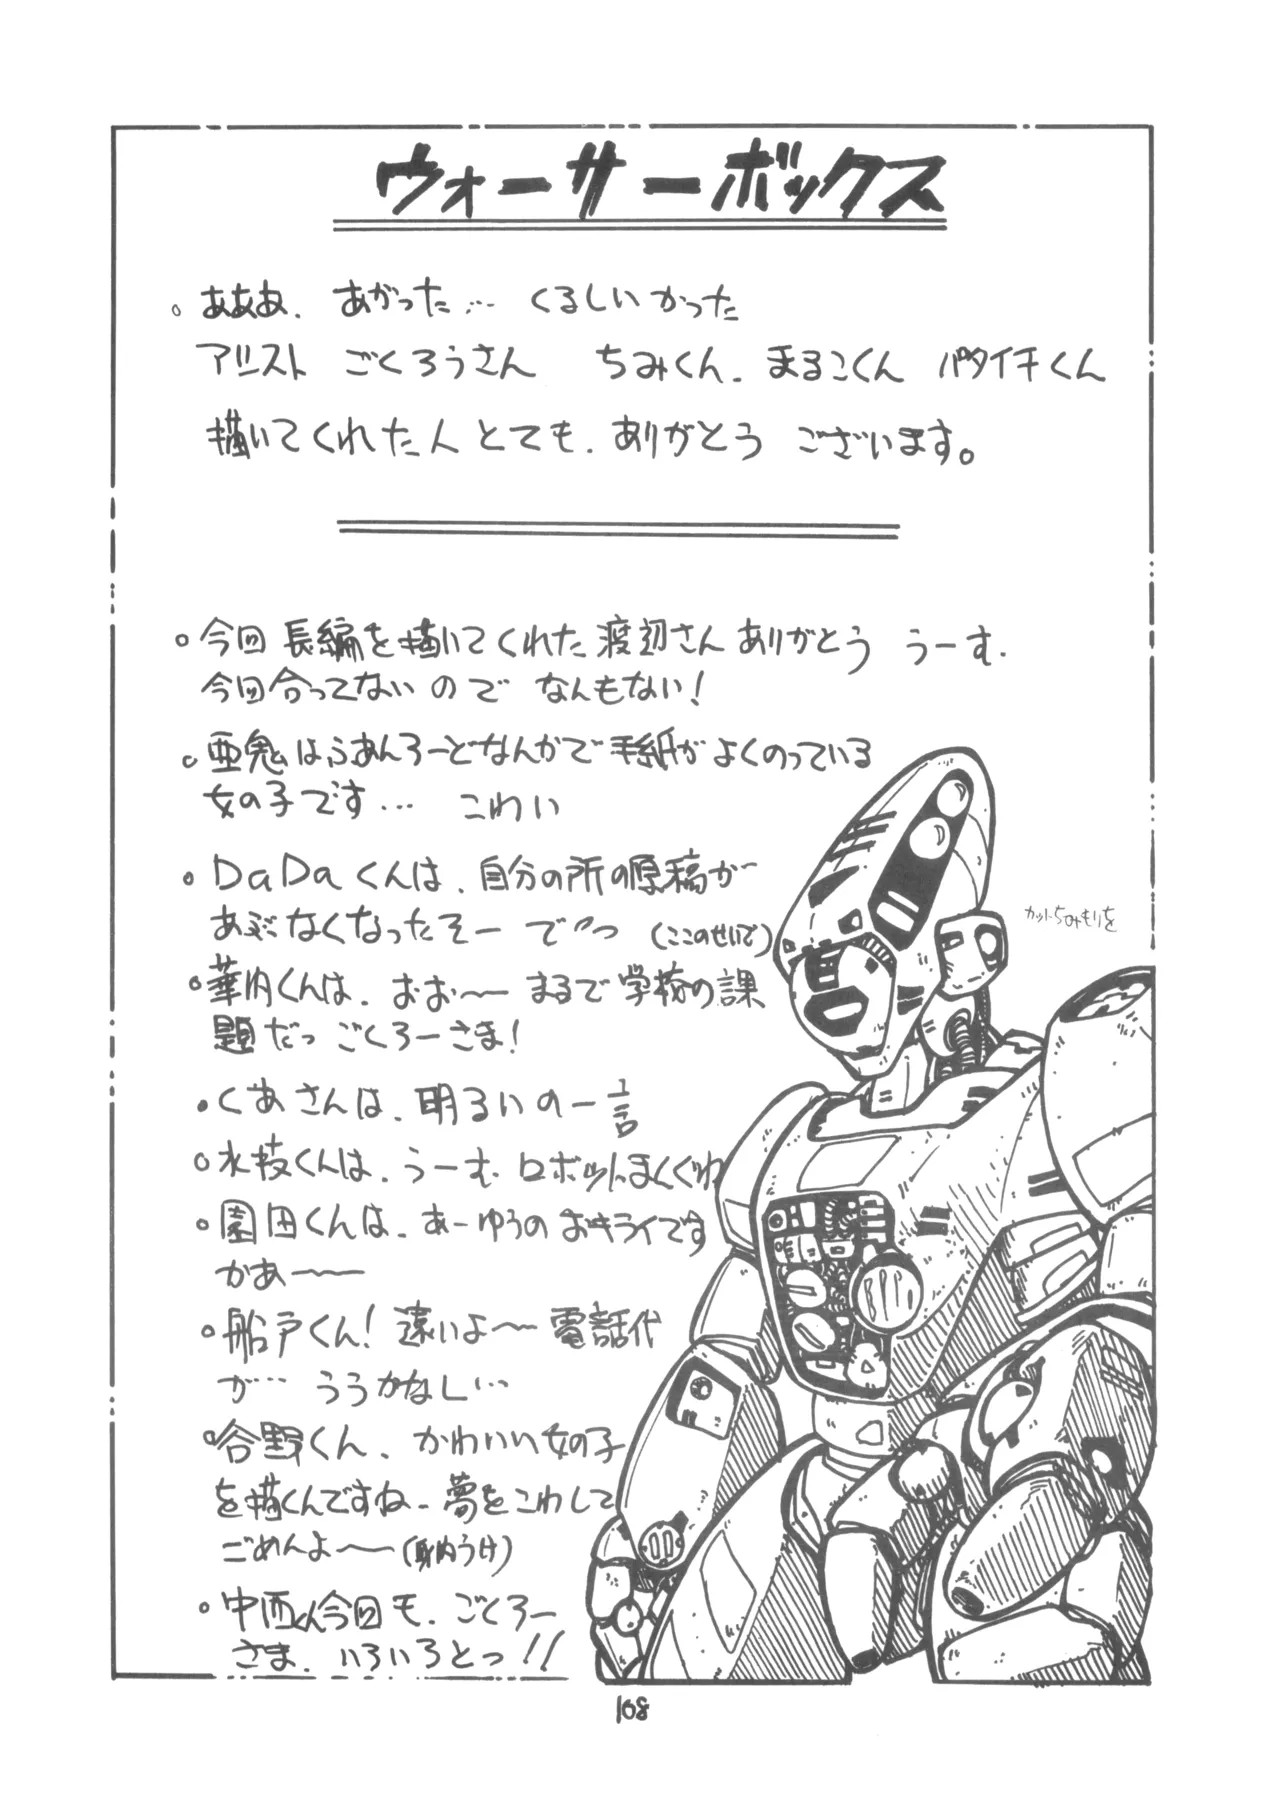 ウォーサーボックス
。あああ、あがった… くるしいかった
アシスト ごくろうさん ちみくん、まるこくん バタイチくん
描いてくれた人とても、ありがとう ございます。
。今回 長編を描いてくれた渡辺さん ありがとう うーす、
今回合ってないので なんもない!
。亜鬼はふぁんろーどなんかで手紙がよくのっている
女の子です… こわい
。DaDaくんは、自分の所の原稿が
あぶなくなったそー で〜っ (ここのせいで)
。華内くんは、おお〜 まるで学校の課
題だっ ごくろーさま!
。くあさんは、明るいの一言
。水枝くんは、うーむ ロボットまくぐわ
。園田くんは、あーゆうの おキライです
かあ〜
。船戸くん! 遠いよ〜 電話代
が… ううかなし…
。合野くん、かわいい女の子
を描くんですね、夢をこわして
ごめんよ〜(身内うけ)
。中西くん今回も、ごくろー
さま、いろいろとっ!!
カットちみもりを
108